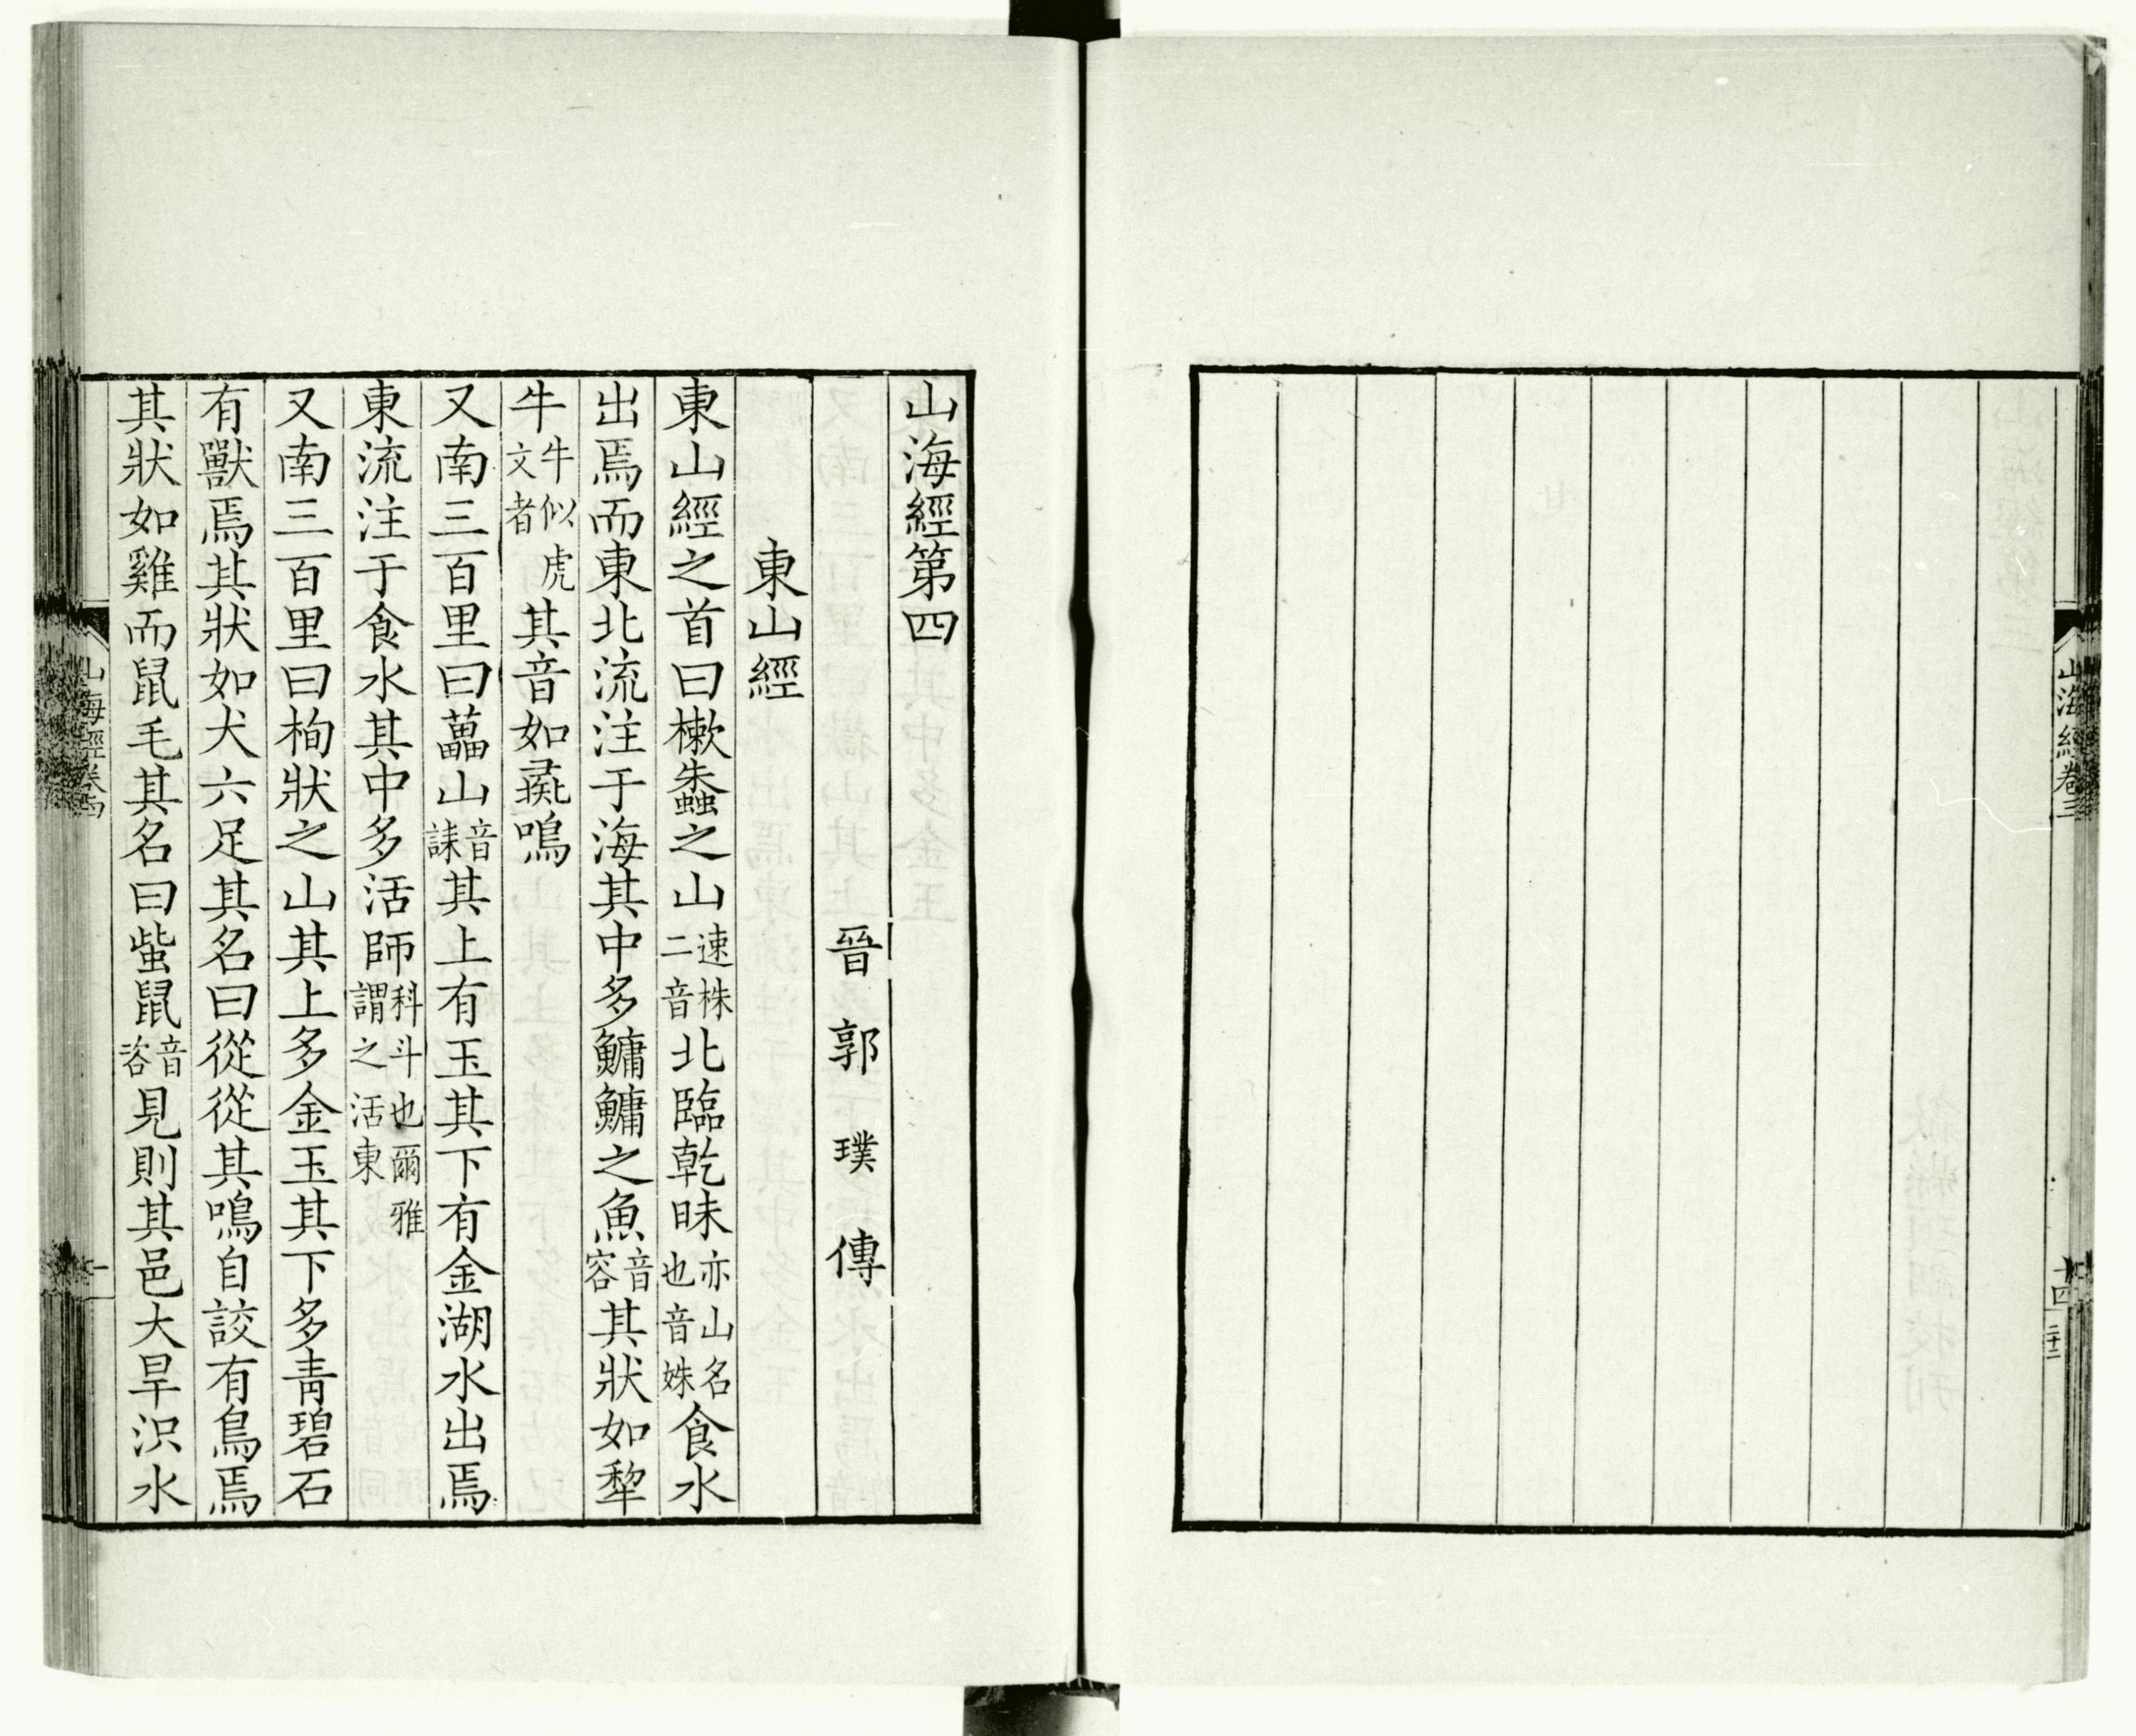 山海經卷三
十四
山海經第四
晉郭璞傳
東山經
東山經之首曰樕𧑤之山速株二音北臨乾昧亦山名也音妹食水
出焉而東北流注于海其中多鱅鱅之魚音容其狀如犂
牛牛似虎文者其音如彘鳴
又南三百里曰藟山音誄其上有玉其下有金湖水出焉
東流注于食水其中多活師科斗也爾雅謂之活東
又南三百里曰栒狀之山其上多金玉其下多青碧石
有獸焉其狀如犬六足其名曰從從其鳴自詨有鳥焉
其狀如雞而鼠毛其名曰蚩鼠音咨見則其邑大旱沢水
山海經卷四
一